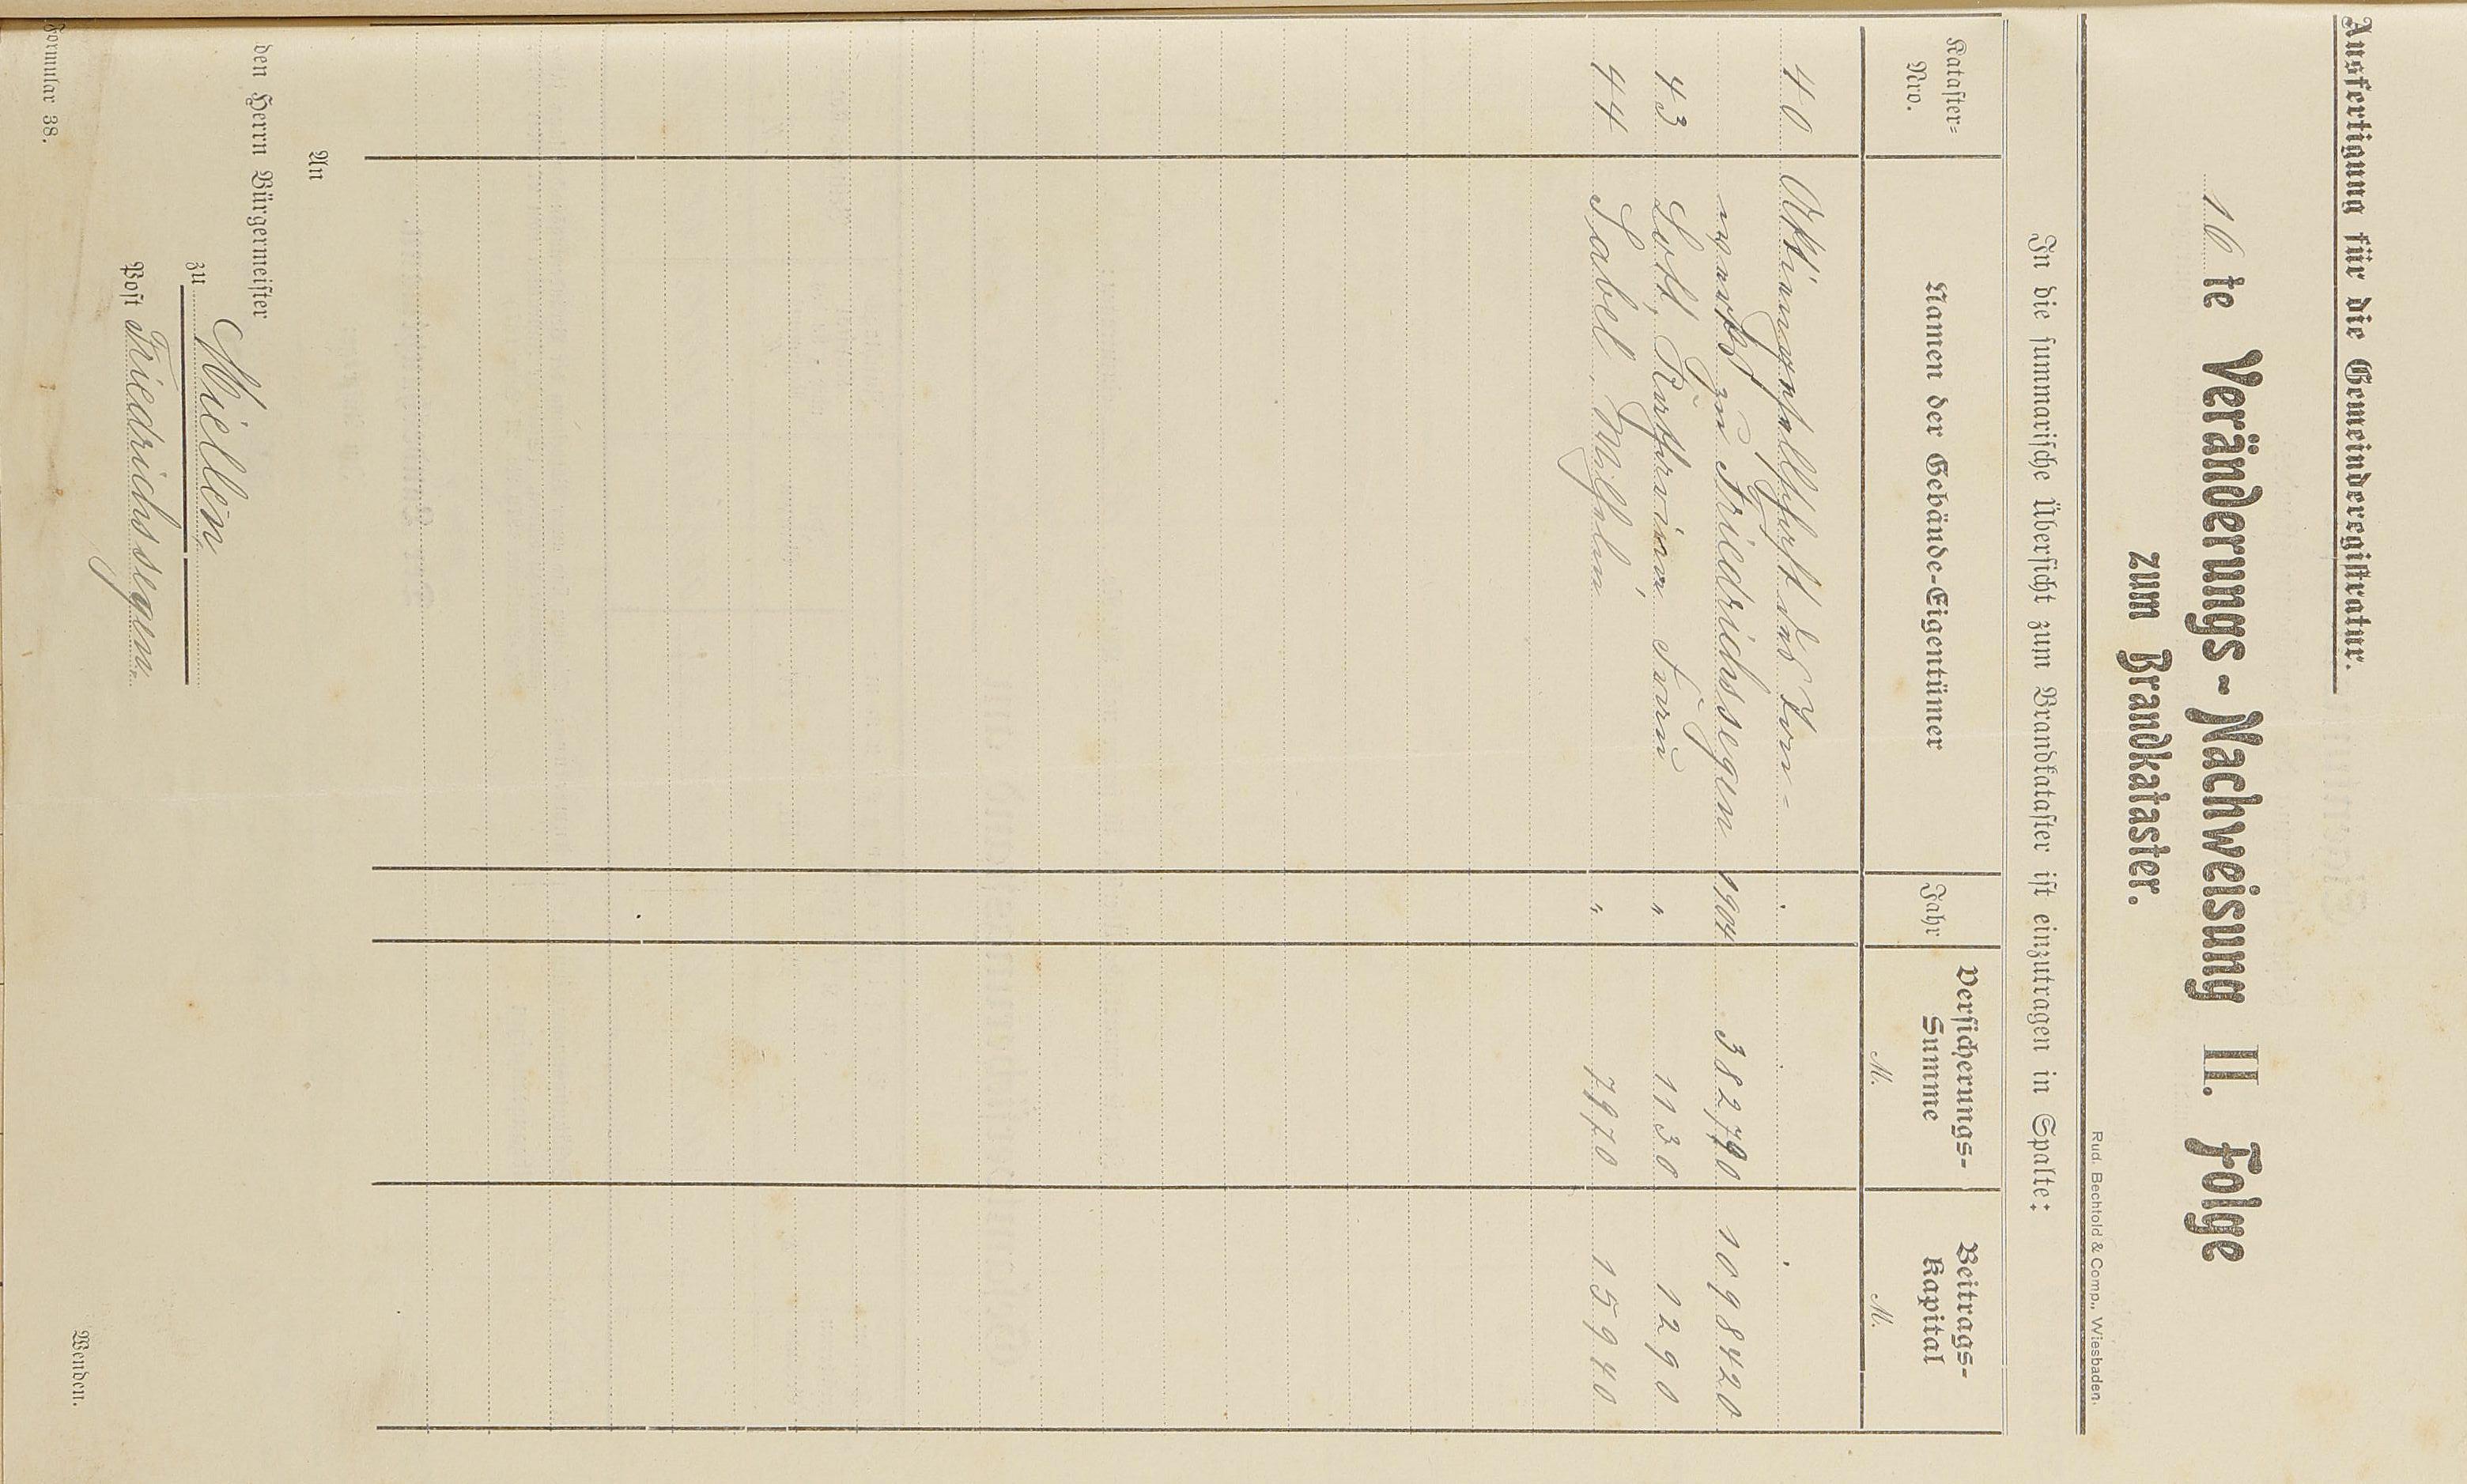 Ausfertigung für die Gemeinderegistratur.
10 te Veränderungs-Nachweisung II. Folge
zum Brandkataster.
Rud. Bechtold & Comp., Wiesbaden.
In die summarische Übersicht zum Brandkataster ist einzutragen in Spalte:
Kataster-Nro. Namen der Gebäude-Eigentümer Jahr Versicherungs-Summe Beitrags-Kapital
M. M.
40 Aktiengesellschaft des Berg-
werks zu Friedrichssegen 1904 382790 1098420
43 Lott, Frau " 1130 1290
44 Sabel, Wilhelm " 7970 15940
An
den Herrn Bürgermeister
zu Miellen
Post Friedrichssegen
Formular 38.
Wenden.